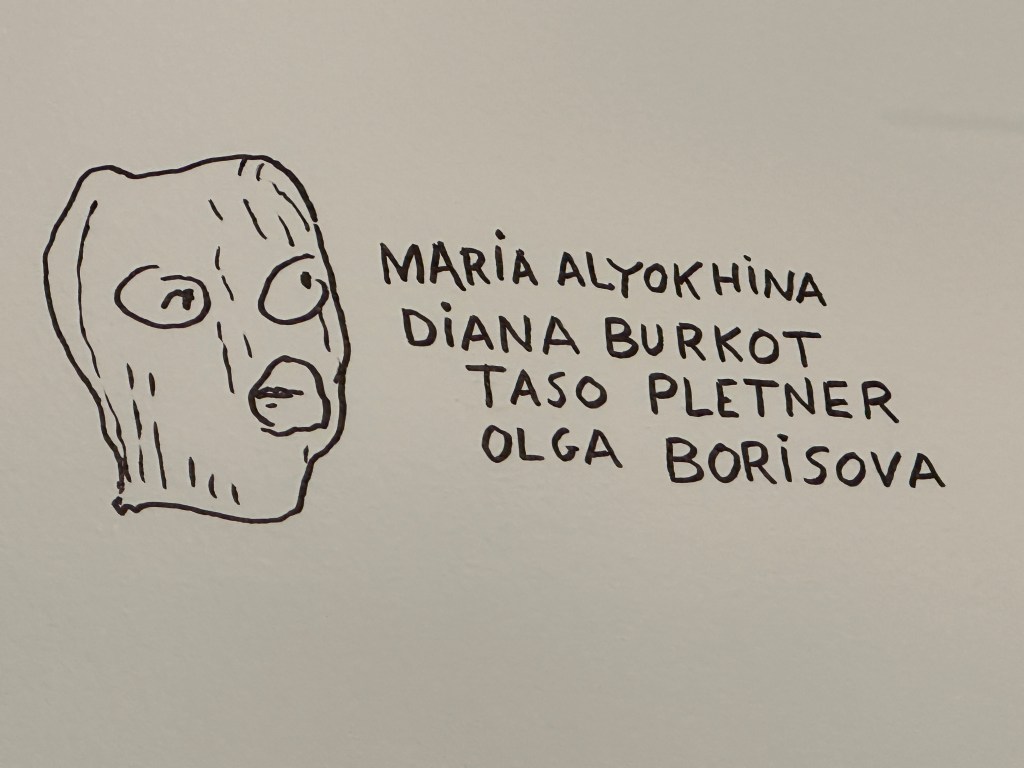 MARiA ALYOKHiNA
DiANA BURKOT
TASO PLETNER
OLGA BORiSOVA